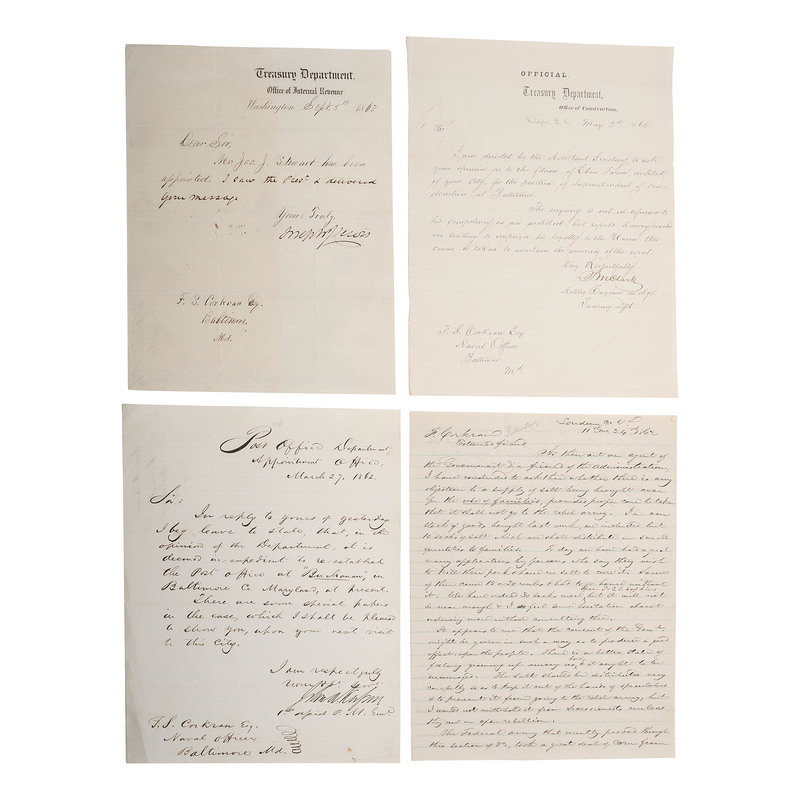 Treasury Department,
Office of Internal Revenue.
Washington Sept. 5th 1863
Dear Sir,
Mr. Jos. J. Stewart has been
appointed. I saw the Prest & delivered
your message
Yours Truly
F. S. Corkran Esq.
Baltimore.
Md.
OFFICIAL.
Treasury Department,
Office of Construction,
May 2d
Sir
I am directed by the Assistant Secretary to ask
your opinion as to the fitness of architect
of your city, for the position of superintendent of con-
struction at Baltimore.
The enquiry is not in reference to
his competency as an architect, but reports having reached
us tending to impeach his loyalty to the Union, this
course is taken to ascertain the accuracy of the report.
Very Respectfully
S. M. Clark
Acting Engineer in chge
Treasury Dept.
F. S. Corkran Esq
Naval Officer
Baltimore
Md
Post Office Department
Appointment Office,
March 27, 1862
Sir:
In reply to yours of yesterday
I beg leave to state, that, in the
opinion of the Department, it is
deemed inexpedient to re-establish
the Post Office at "Buchanan", in
Baltimore Co Maryland, at present.
There are some special papers
in the case, which I shall be pleased
to show you, upon your next visit
to this City.
I am respectfully
your obt Svt
John A Kasson
1st Assist P. M. Genl
F. S. Corkran Esq.
Naval Officer
Baltimore Md.
Loudoun Co Va
11th mo 24th 1862
F. Corkran
Esteemed friend
As thou art an agent of
the Government & a friend of the administration,
I have concluded to ask thee whether there is any
objection to a supply of salt being brought over
for the use of families, provided proper care be taken
that it shall not go to the rebel army. In our
stock of goods bought last week, we included but
10 sacks of salt which we shall distribute in small
quantities to families. To day we have had a great
many applications by persons who say they wish
to kill their pork & have no salt to cure it. Some
of them came 15 or 20 miles & had to go home without
it. We have ordered 30 sacks more but it will not
be near enough & I do feel some hesitation about
ordering more without consulting thee.
It appears to me that the consent of the Govt
might be given in such a way as to produce a good
effect upon the people. There is a better state of
feeling growing up among us, & it ought to be
encouraged. The salt should be distributed very
carefully so as to keep it out of the hands of speculators
& to prevent it from going to the rebel army, but
I would not withhold it from Secessionists unless
they are in open rebellion.
The Federal army that recently passed through
this section of Va, took a great deal of corn